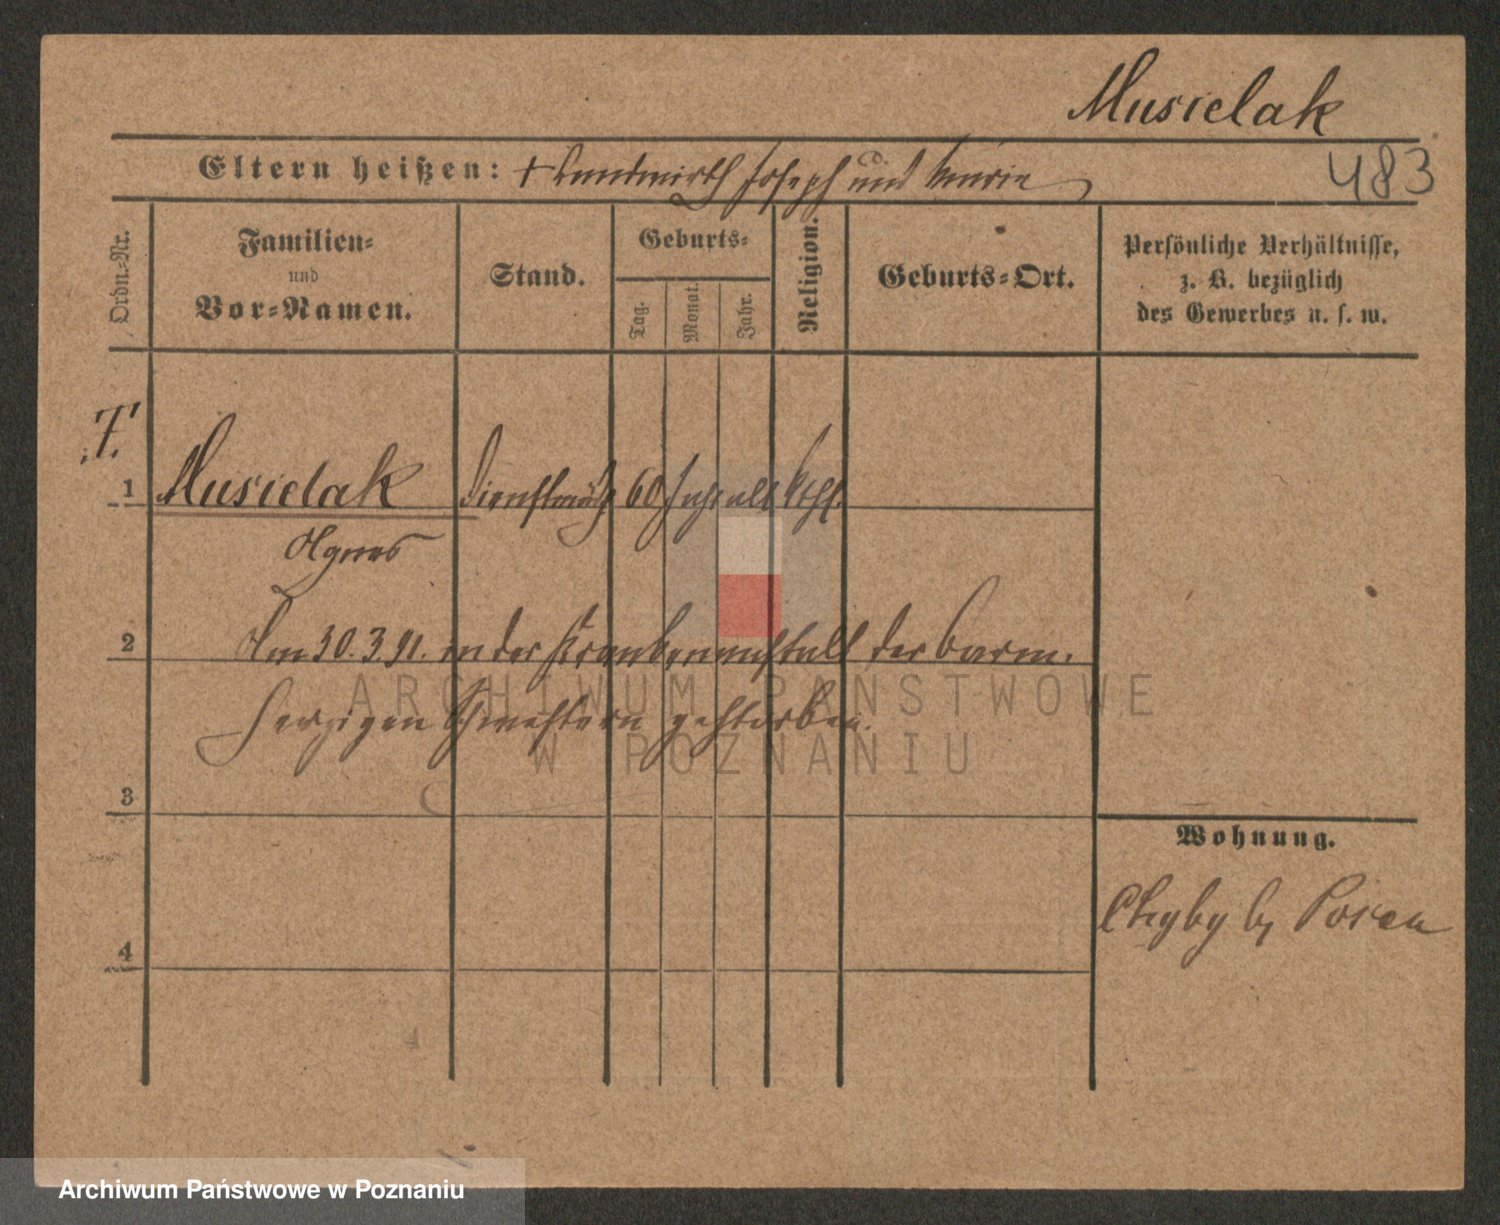 Musielak
483
Eltern heißen: + Landwirth Joseph und Marie
Ordn.-Nr.
Familien-
und
Vor-Namen.
Stand.
Geburts-
Tag.
Monat.
Jahr.
Religion.
Geburts-Ort.
Persönliche Verhältnisse,
z. B. bezüglich
des Gewerbes u. s. w.
T.
1 Musielak Dienstmagd 60 Jahr alt kth.
Agnes
2 Am 30.3.91. in der Krankenanstalt der barm.
herzigen Schwestern gestorben.
3
Wohnung.
Chyby b/ Posen
4
ARCHIWUM PAŃSTWOWE
W POZNANIU
Archiwum Państwowe w Poznaniu